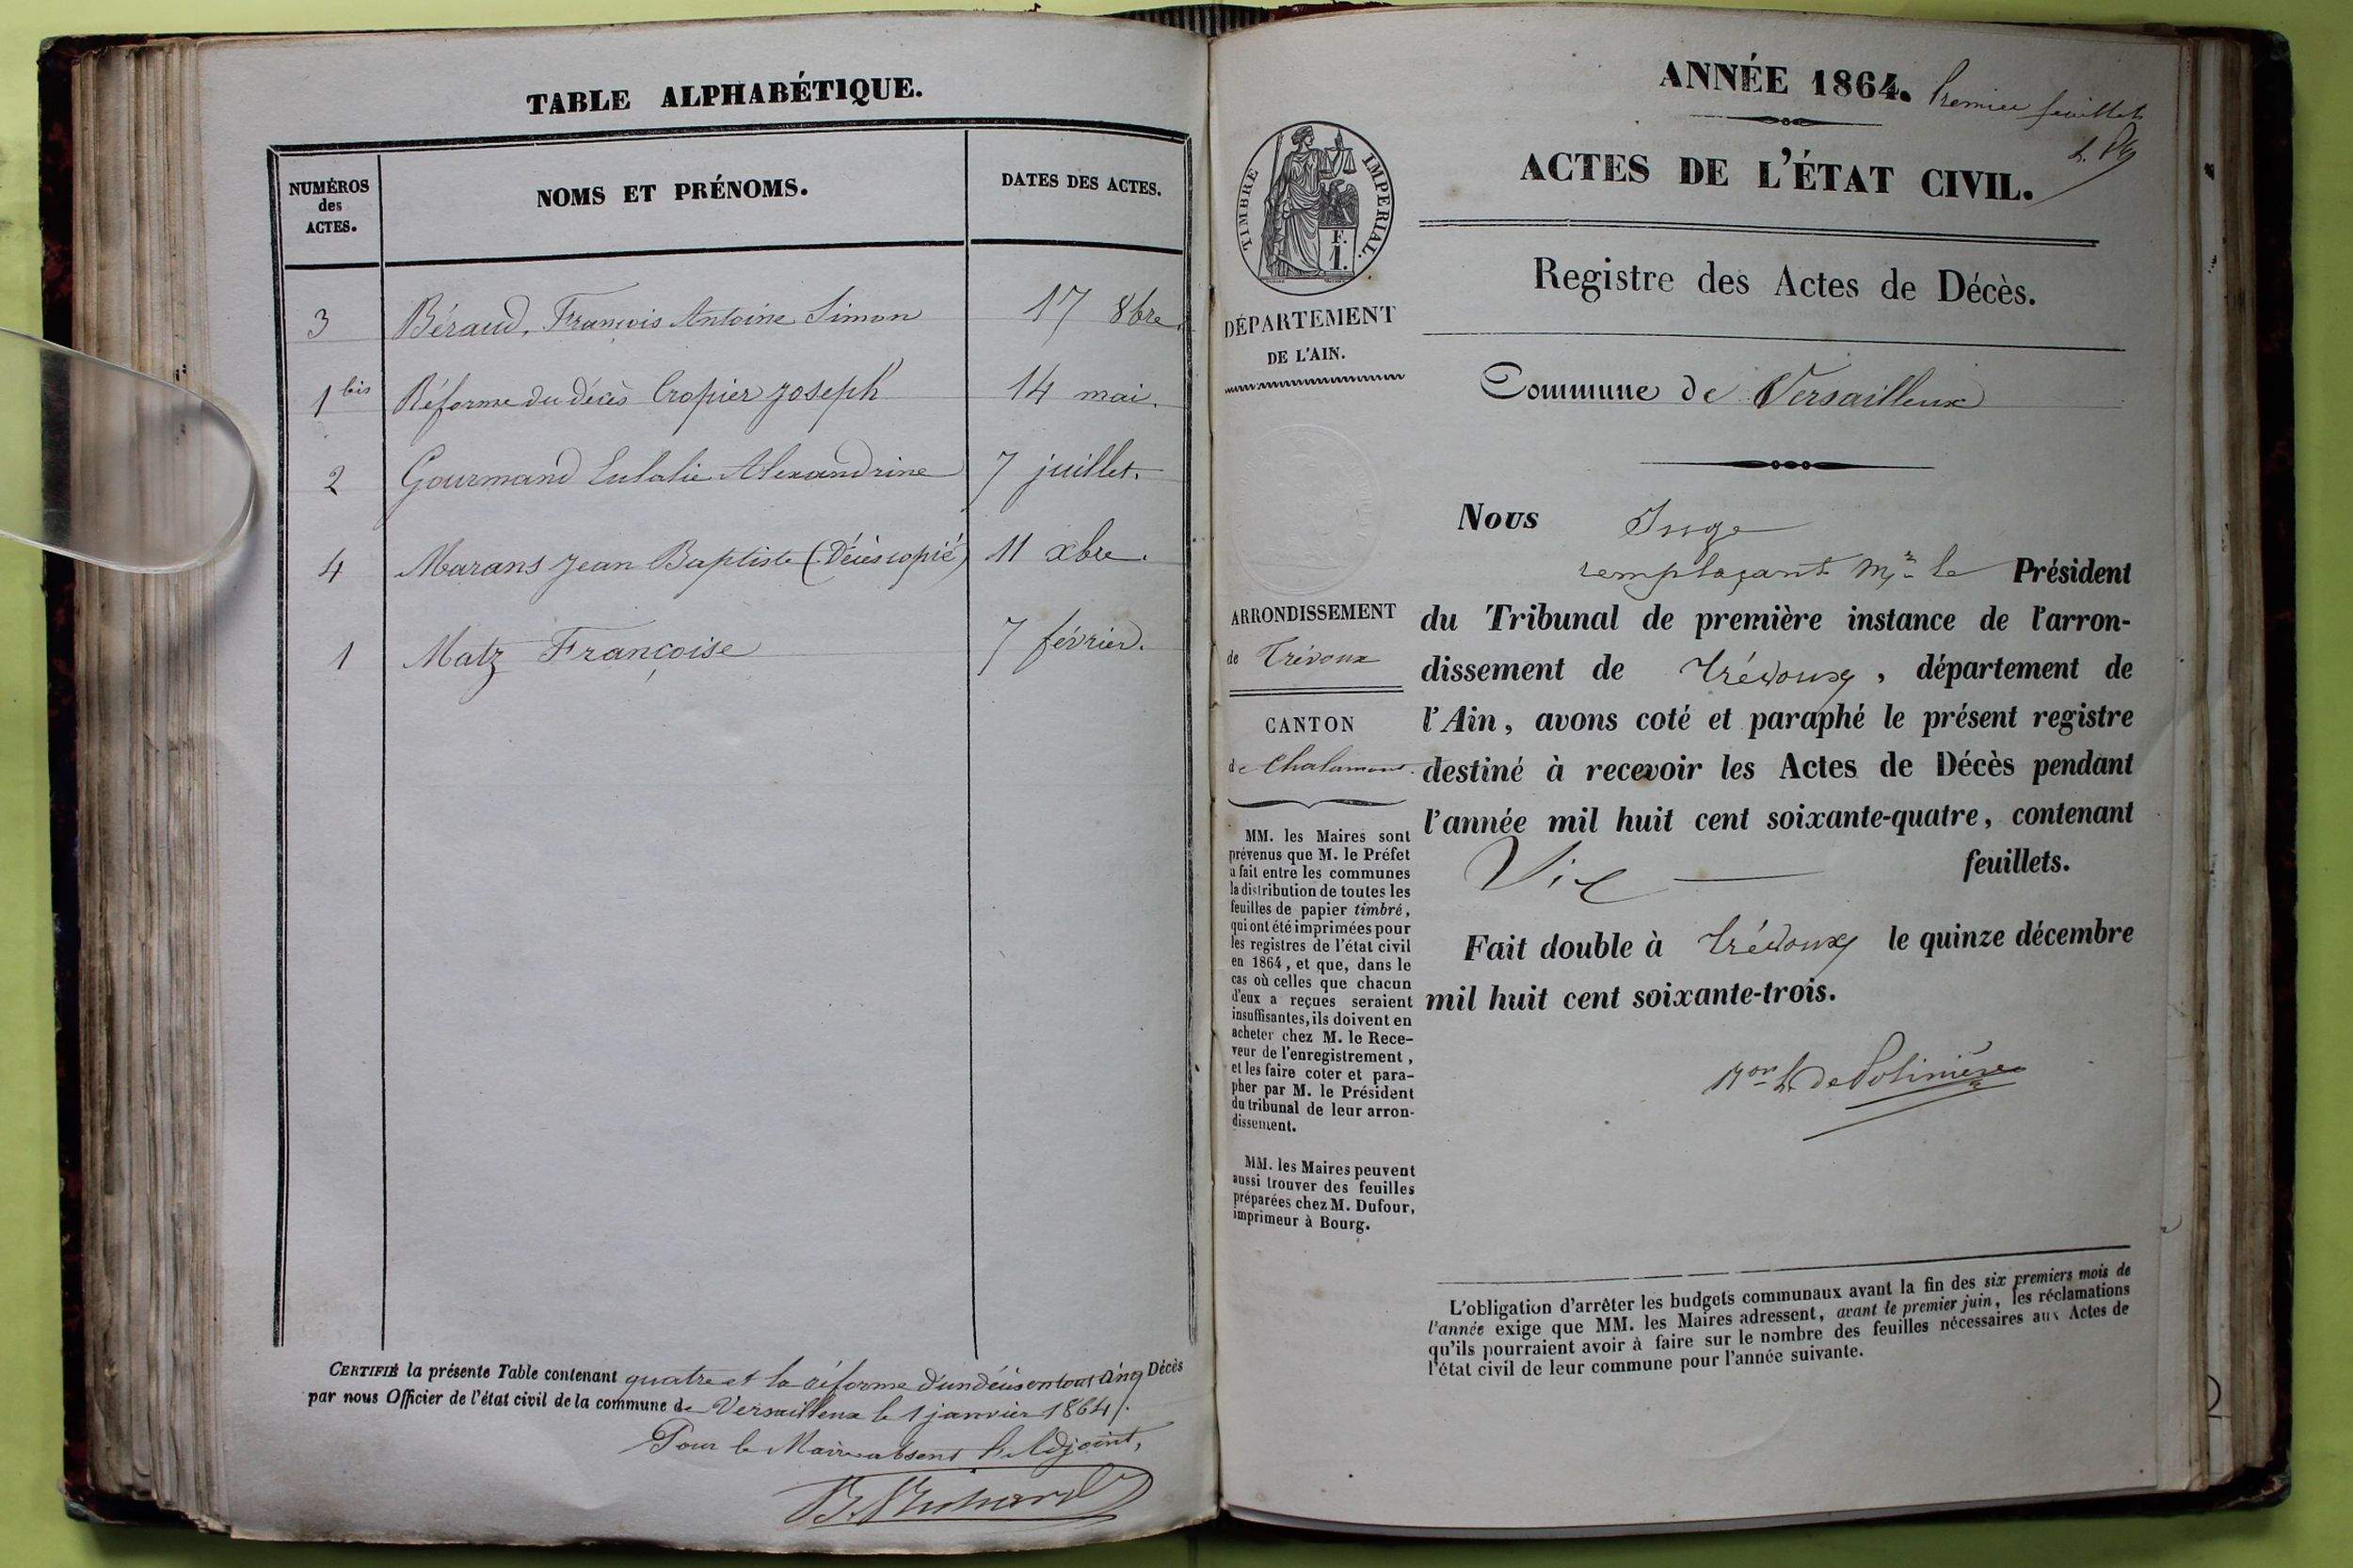 TABLE ALPHABÉTIQUE.
NUMÉROS
des
ACTES.
NOMS ET PRÉNOMS.
DATES DES ACTES.
3 Béraud, François Antoine Simon 17 8bre.
1 bis Réforme du décès Cropier Joseph 14 mai.
2 Gourmand Eulalie Alexandrine 7 juillet.
4 Marans Jean Baptiste (Décès copié) 11 xbre.
1 Matz Françoise 7 février.
CERTIFIÉ la présente Table contenant quatre et la réforme d'un décès en tout cinq Décès
par nous Officier de l'état civil de la commune de Versailleux le 1 janvier 1864.
Pour le Maire absent l'Adjoint,
ANNÉE 1864. Premier feuillet
ACTES DE L'ÉTAT CIVIL.
TIMBRE IMPERIAL.
F.
1.
Registre des Actes de Décès.
DÉPARTEMENT
DE L'AIN.
Commune de Versailleux
Nous Juge
remplaçant Mr le Président
du Tribunal de première instance de l'arron-
dissement de Trévoux, département de
l'Ain, avons coté et paraphé le présent registre
destiné à recevoir les Actes de Décès pendant
l'année mil huit cent soixante-quatre, contenant
feuillets.
Fait double à Trévoux le quinze décembre
mil huit cent soixante-trois.
Bon L. de Polinière
ARRONDISSEMENT
de Trévoux
CANTON
de Chalamont.
MM. les Maires sont
prévenus que M. le Préfet
a fait entre les communes
la distribution de toutes les
feuilles de papier timbré,
qui ont été imprimées pour
les registres de l'état civil
en 1864, et que, dans le
cas où celles que chacun
d'eux a reçues seraient
insuffisantes, ils doivent en
acheter chez M. le Rece-
veur de l'enregistrement,
et les faire coter et para-
pher par M. le Président
du tribunal de leur arron-
dissement.
MM. les Maires peuvent
aussi trouver des feuilles
préparées chez M. Dufour,
imprimeur à Bourg.
L'obligation d'arrêter les budgets communaux avant la fin des six premiers mois de
l'année exige que MM. les Maires adressent, avant le premier juin, les réclamations
qu'ils pourraient avoir à faire sur le nombre des feuilles nécessaires aux Actes de
l'état civil de leur commune pour l'année suivante.